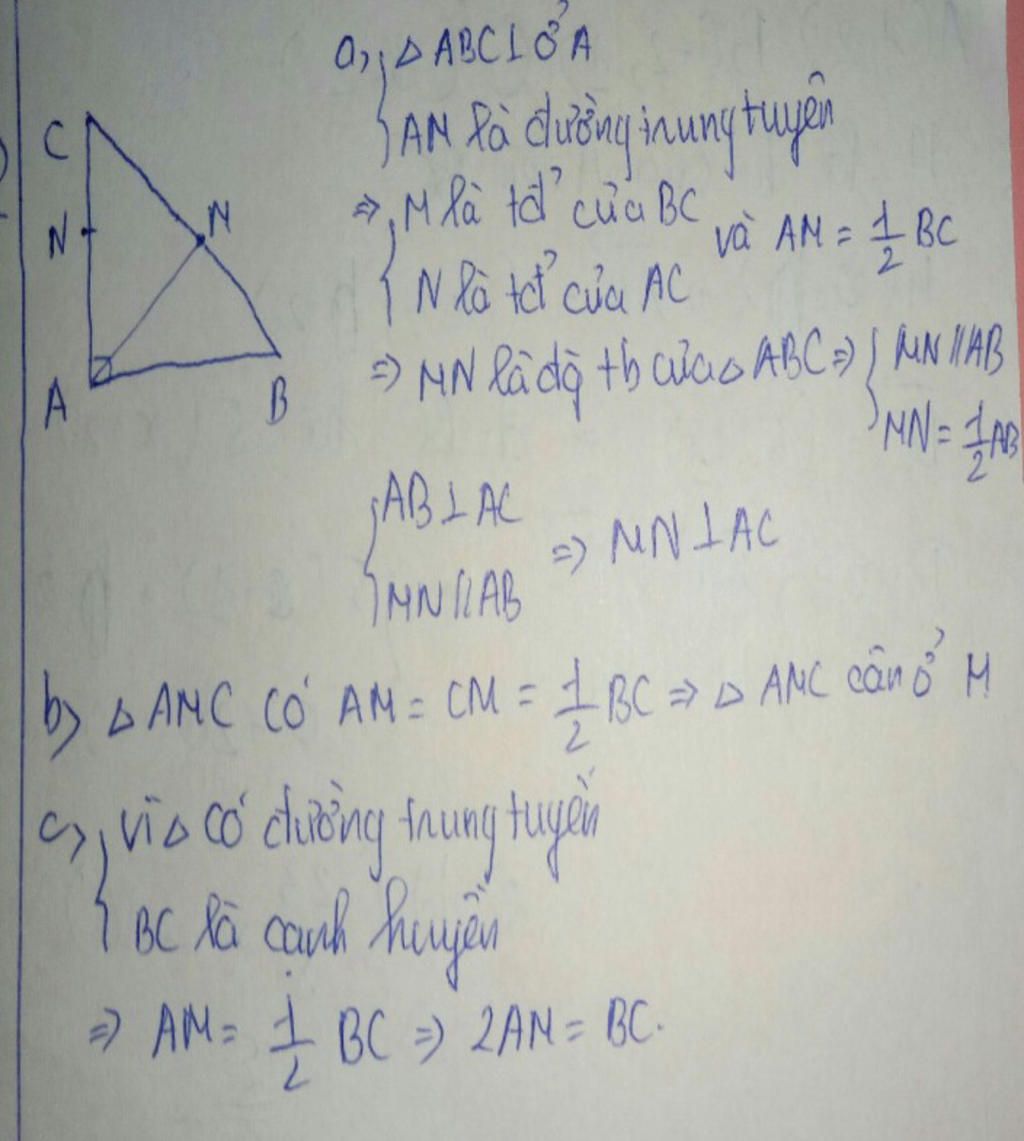 a, { △ABC ⊥ ở A
AM là đường trung tuyến
⇒ { M là tđ' của BC và AM = 1/2 BC
N là tđ' của AC
⇒ MN là đg tb của △ ABC ⇒ { MN // AB
MN = 1/2 AB
{ AB ⊥ AC
MN // AB ⇒ MN ⊥ AC
C
N
M
A
B
b, △ AMC có AM = CM = 1/2 BC ⇒ △ AMC cân ở M
c, { Vì △ có đường trung tuyến
BC là cạnh huyền
⇒ AM = 1/2 BC ⇒ 2AM = BC.